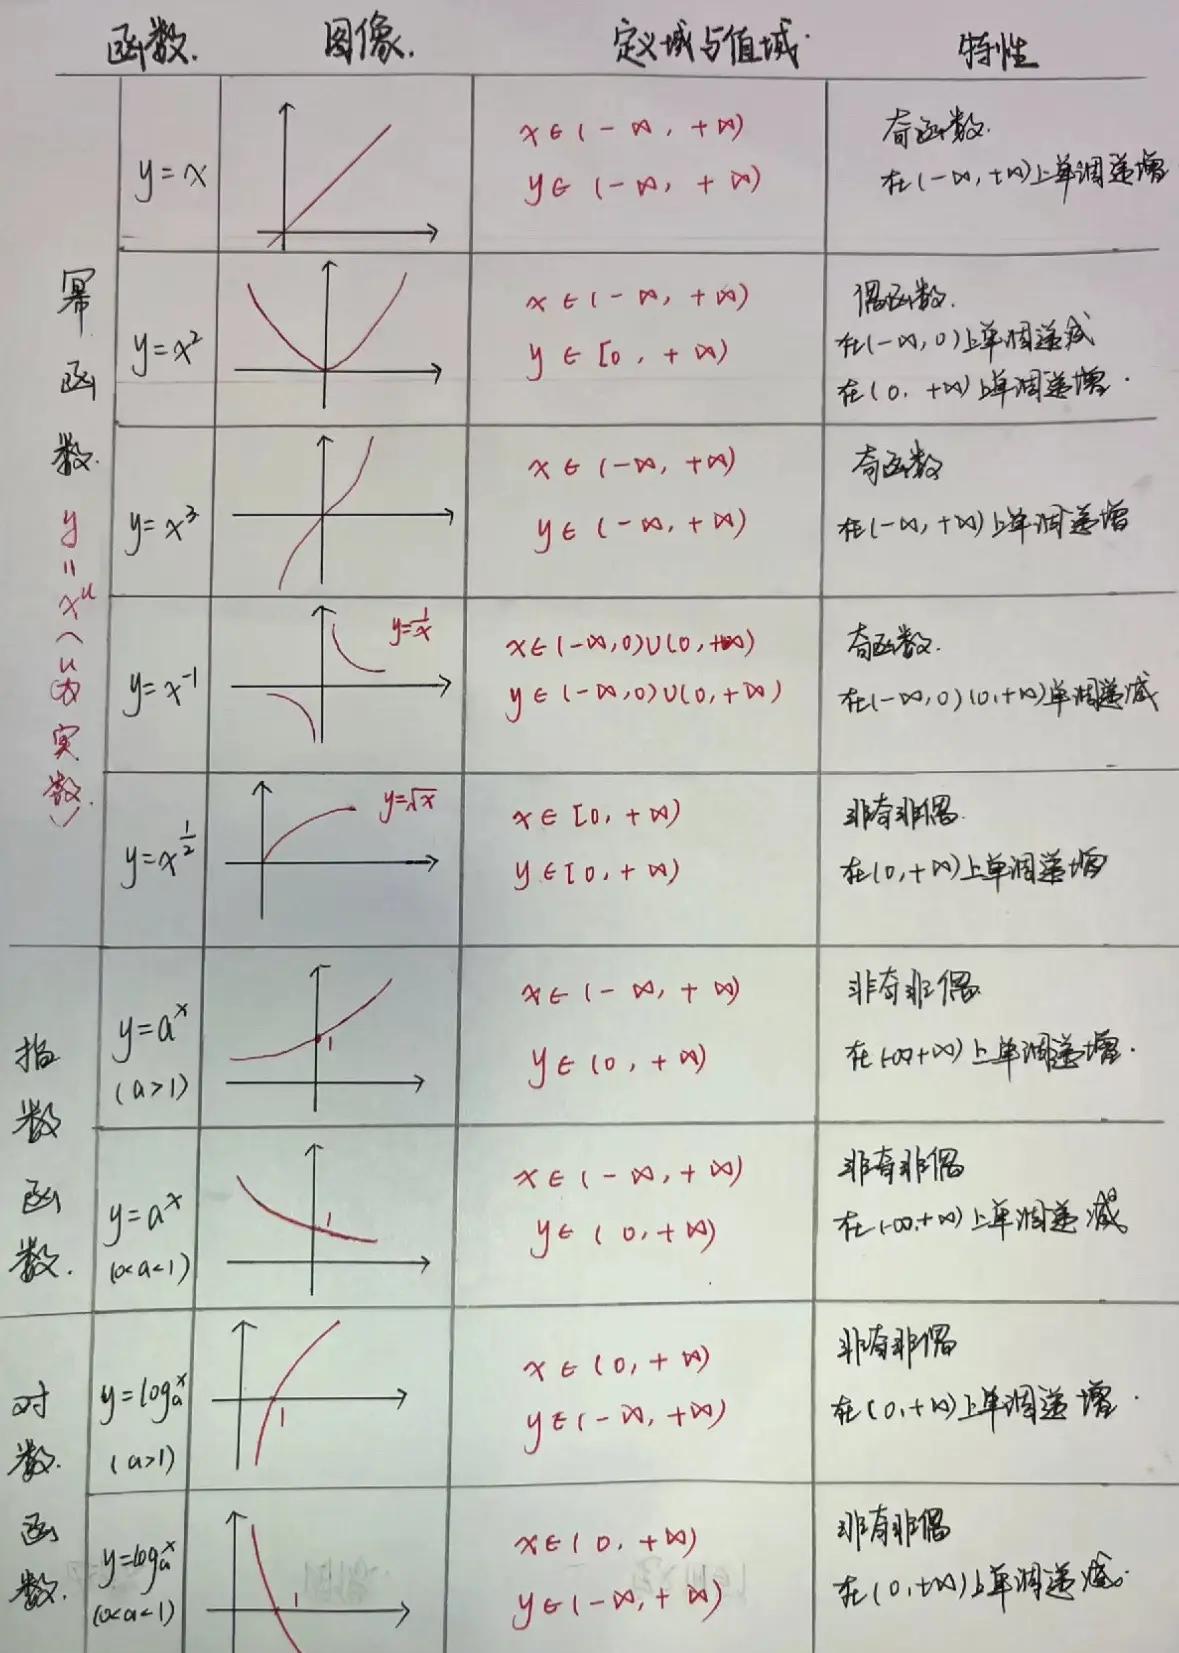 函数. 图像. 定义域与值域. 特性
幂函数. y=x^u (u为实数.)
y=x
x∈(-∞,+∞)
y∈(-∞,+∞)
奇函数.
在(-∞,+∞)上单调递增
y=x²
x∈(-∞,+∞)
y∈[0,+∞)
偶函数.
在(-∞,0)上单调递减
在(0,+∞)上单调递增.
y=x³
x∈(-∞,+∞)
y∈(-∞,+∞)
奇函数
在(-∞,+∞)上单调递增
y=x⁻¹
y=1/x
x∈(-∞,0)∪(0,+∞)
y∈(-∞,0)∪(0,+∞)
奇函数.
在(-∞,0)(0,+∞)单调递减
y=x^½
y=√x
x∈[0,+∞)
y∈[0,+∞)
非奇非偶.
在(0,+∞)上单调递增
指数函数.
y=a^x
(a>1)
1
x∈(-∞,+∞)
y∈(0,+∞)
非奇非偶
在(-∞+∞)上单调递增.
y=a^x
(0<a<1)
1
x∈(-∞,+∞)
y∈(0,+∞)
非奇非偶
在(-∞,+∞)上单调递减
对数函数.
y=logₐx
(a>1)
1
x∈(0,+∞)
y∈(-∞,+∞)
非奇非偶
在(0,+∞)上单调递增.
y=logₐx
(0<a<1)
1
x∈(0,+∞)
y∈(-∞,+∞)
非奇非偶
在(0,+∞)上单调递减.